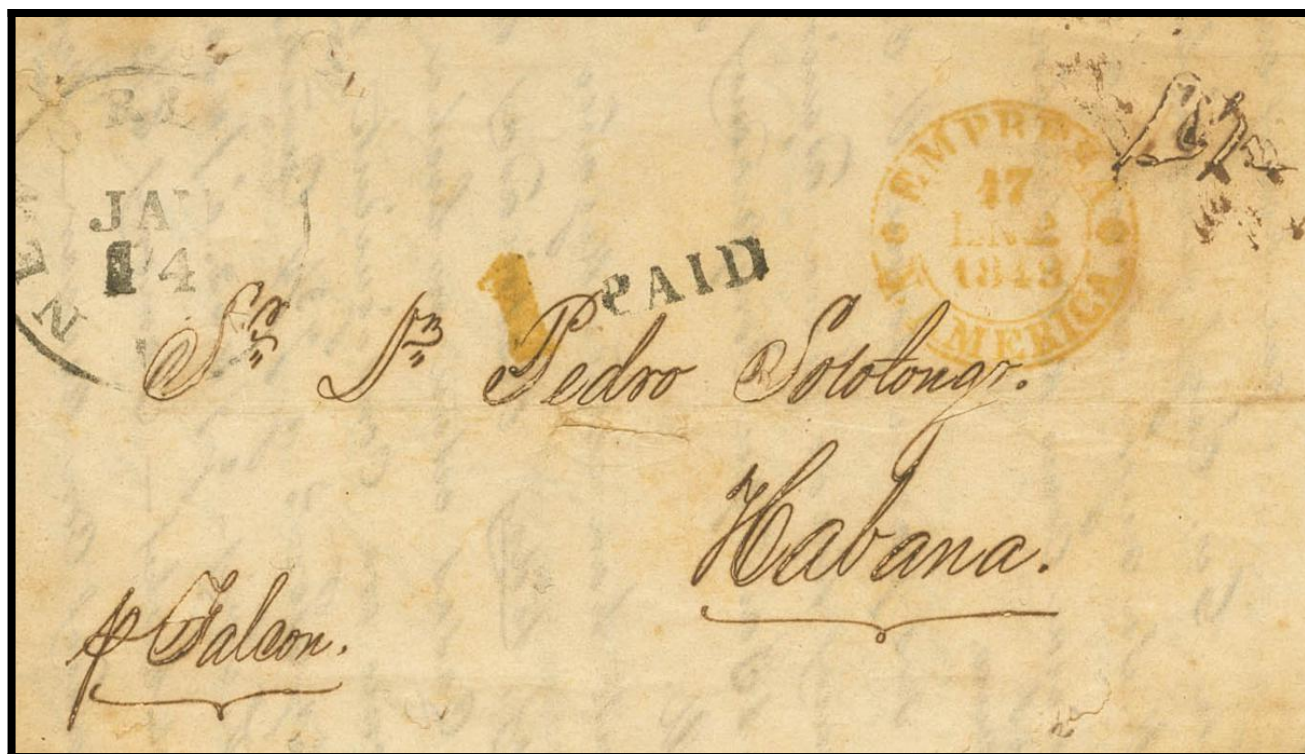 JA
14
PAID
1
EMPRESA
17
AMERICA
Sr. Dn. Pedro Sotolongo.
Habana.
p Falcon.